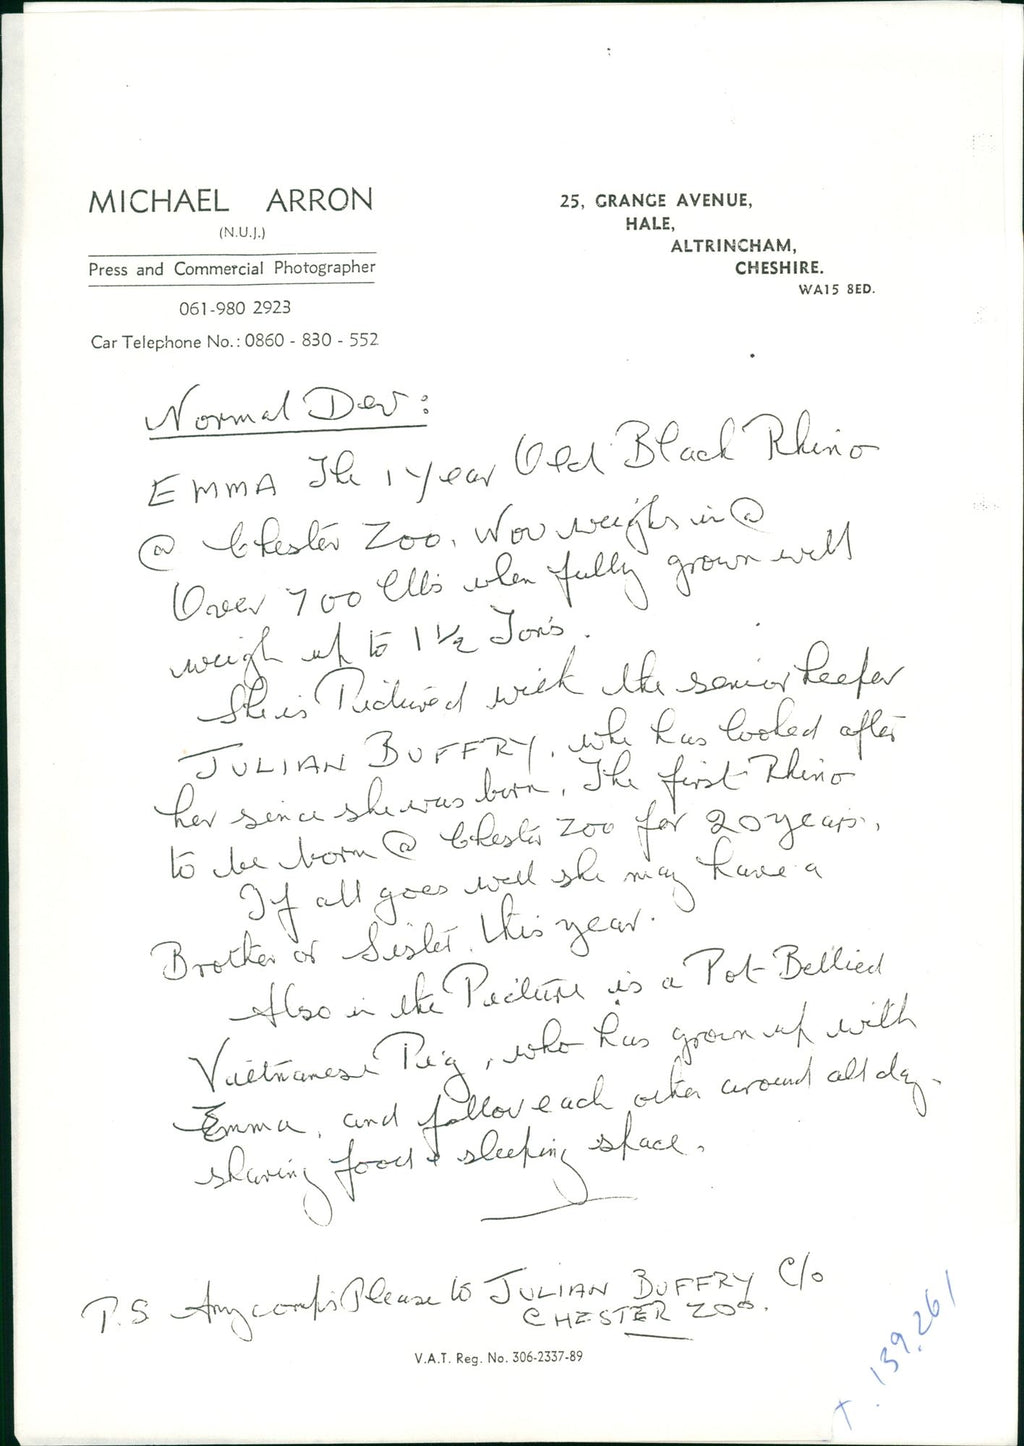 MICHAEL ARRON
(N.U.J.)
Press and Commercial Photographer
061-980 2923
Car Telephone No.: 0860 - 830 - 552
25, GRANGE AVENUE,
HALE,
ALTRINCHAM,
CHESHIRE.
WA15 8ED.
Normal Dev:
EMMA The 1 Year Old Black Rhino
@ Chester Zoo, Now weighs in @
Over 700 llbs when fully grown will
weigh up to 1 1/2 Ton's.
She is Pictured with the senior keeper
JULIAN BUFFRY, who has looked after
her since she was born, The first Rhino
to be born @ Chester Zoo for 20 years,
If all goes well she may have a
Brother or Sister this year.
Also in the Picture is a Pot-Bellied
Vietnamese Pig, who has grown up with
Emma, and follow each other around all day,
sharing food & sleeping space.
P.S Any comps Please to JULIAN BUFFRY C/o
CHESTER ZOO.
V.A.T. Reg. No. 306-2337-89
T. 139.261